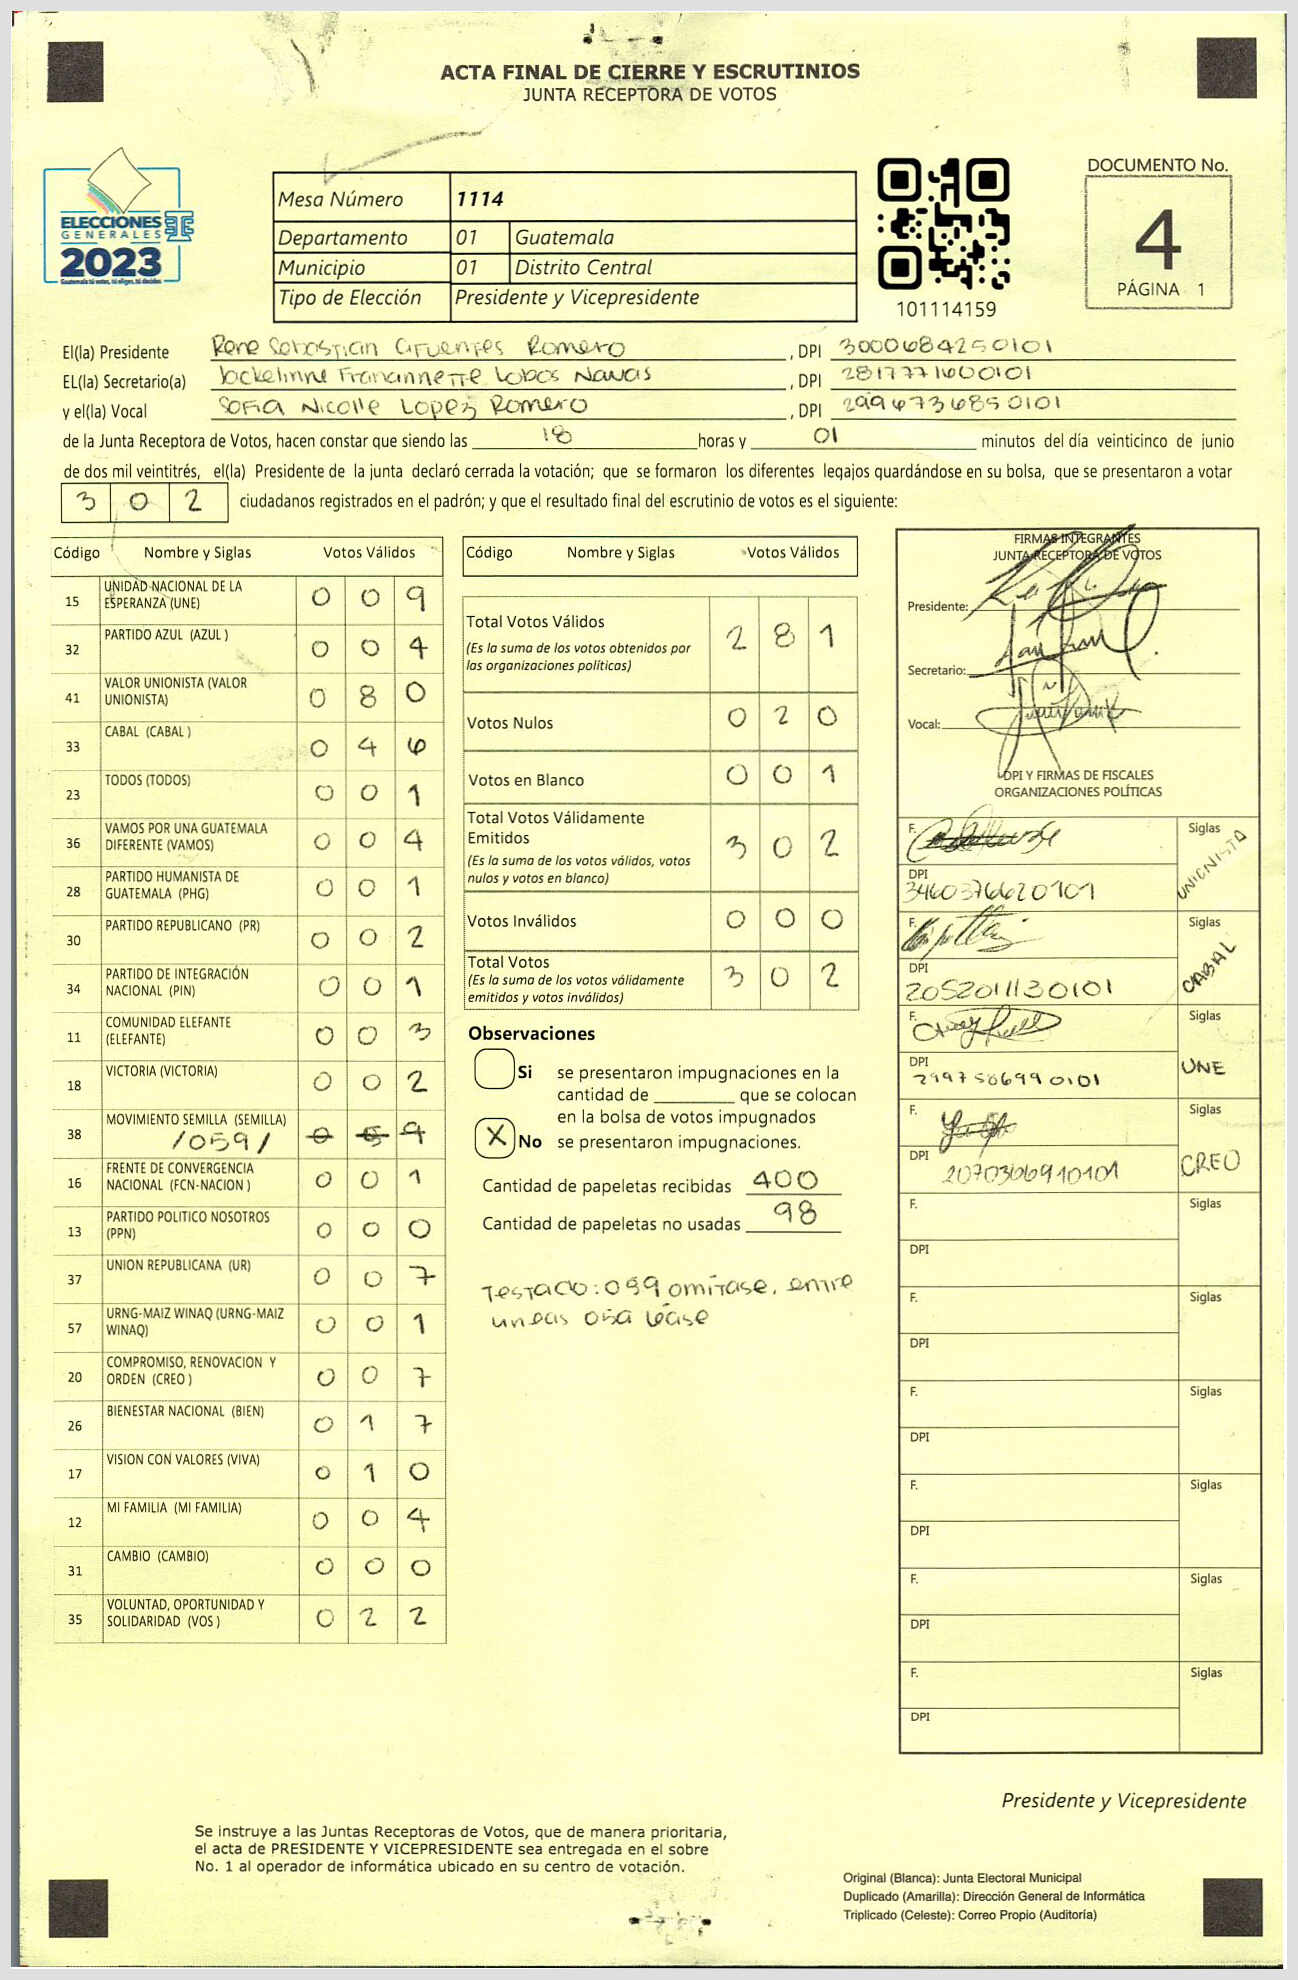 ACTA FINAL DE CIERRE Y ESCRUTINIOS
JUNTA RECEPTORA DE VOTOS
ELECCIONES
GENERALES
2023
Guatemala tú votas, tú eliges, tú decides
Mesa Número 1114
Departamento 01 Guatemala
Municipio 01 Distrito Central
Tipo de Elección Presidente y Vicepresidente
101114159
DOCUMENTO No.
4
PÁGINA 1
El(la) Presidente Rene Sebastian Cifuentes Romero , DPI 3000684250101
EL(la) Secretario(a) Jockelinne Franannette Lobos Navas , DPI 2817771600101
y el(la) Vocal Sofia Nicolle Lopez Romero , DPI 2996736850101
de la Junta Receptora de Votos, hacen constar que siendo las 18 horas y 01 minutos del día veinticinco de junio
de dos mil veintitrés, el(la) Presidente de la junta declaró cerrada la votación; que se formaron los diferentes legajos quardándose en su bolsa, que se presentaron a votar
3 0 2 ciudadanos registrados en el padrón; y que el resultado final del escrutinio de votos es el siguiente:
Código Nombre y Siglas Votos Válidos
15 UNIDAD NACIONAL DE LA ESPERANZA (UNE) 0 0 9
32 PARTIDO AZUL (AZUL ) 0 0 4
41 VALOR UNIONISTA (VALOR UNIONISTA) 0 8 0
33 CABAL (CABAL ) 0 4 6
23 TODOS (TODOS) 0 0 1
36 VAMOS POR UNA GUATEMALA DIFERENTE (VAMOS) 0 0 4
28 PARTIDO HUMANISTA DE GUATEMALA (PHG) 0 0 1
30 PARTIDO REPUBLICANO (PR) 0 0 2
34 PARTIDO DE INTEGRACIÓN NACIONAL (PIN) 0 0 1
11 COMUNIDAD ELEFANTE (ELEFANTE) 0 0 3
18 VICTORIA (VICTORIA) 0 0 2
38 MOVIMIENTO SEMILLA (SEMILLA) /059/
16 FRENTE DE CONVERGENCIA NACIONAL (FCN-NACION ) 0 0 1
13 PARTIDO POLITICO NOSOTROS (PPN) 0 0 0
37 UNION REPUBLICANA (UR) 0 0 7
57 URNG-MAIZ WINAQ (URNG-MAIZ WINAQ) 0 0 1
20 COMPROMISO, RENOVACION Y ORDEN (CREO ) 0 0 7
26 BIENESTAR NACIONAL (BIEN) 0 1 7
17 VISION CON VALORES (VIVA) 0 1 0
12 MI FAMILIA (MI FAMILIA) 0 0 4
31 CAMBIO (CAMBIO) 0 0 0
35 VOLUNTAD, OPORTUNIDAD Y SOLIDARIDAD (VOS ) 0 2 2
Código Nombre y Siglas Votos Válidos
Total Votos Válidos 2 8 1
(Es la suma de los votos obtenidos por
las organizaciones políticas)
Votos Nulos 0 2 0
Votos en Blanco 0 0 1
Total Votos Válidamente
Emitidos 3 0 2
(Es la suma de los votos válidos, votos
nulos y votos en blanco)
Votos Inválidos 0 0 0
Total Votos 3 0 2
(Es la suma de los votos válidamente
emitidos y votos inválidos)
Observaciones
Si se presentaron impugnaciones en la
cantidad de ________ que se colocan
en la bolsa de votos impugnados
X No se presentaron impugnaciones.
Cantidad de papeletas recibidas 400
Cantidad de papeletas no usadas 98
Testado: 099 omitase, entre
lineas 059 léase
FIRMAS INTEGRANTES
JUNTA RECEPTORA DE VOTOS
Presidente:
Secretario:
Vocal:
DPI Y FIRMAS DE FISCALES
ORGANIZACIONES POLÍTICAS
F. Siglas UNIONISTA
DPI 3460376620101
F. Siglas CABAL
DPI 2052011130101
F. Siglas UNE
DPI 2997506990101
F. Siglas CREO
DPI 2070306910101
F. Siglas
DPI
F. Siglas
DPI
F. Siglas
DPI
F. Siglas
DPI
F. Siglas
DPI
F. Siglas
DPI
Presidente y Vicepresidente
Se instruye a las Juntas Receptoras de Votos, que de manera prioritaria,
el acta de PRESIDENTE Y VICEPRESIDENTE sea entregada en el sobre
No. 1 al operador de informática ubicado en su centro de votación.
Original (Blanca): Junta Electoral Municipal
Duplicado (Amarilla): Dirección General de Informática
Triplicado (Celeste): Correo Propio (Auditoría)